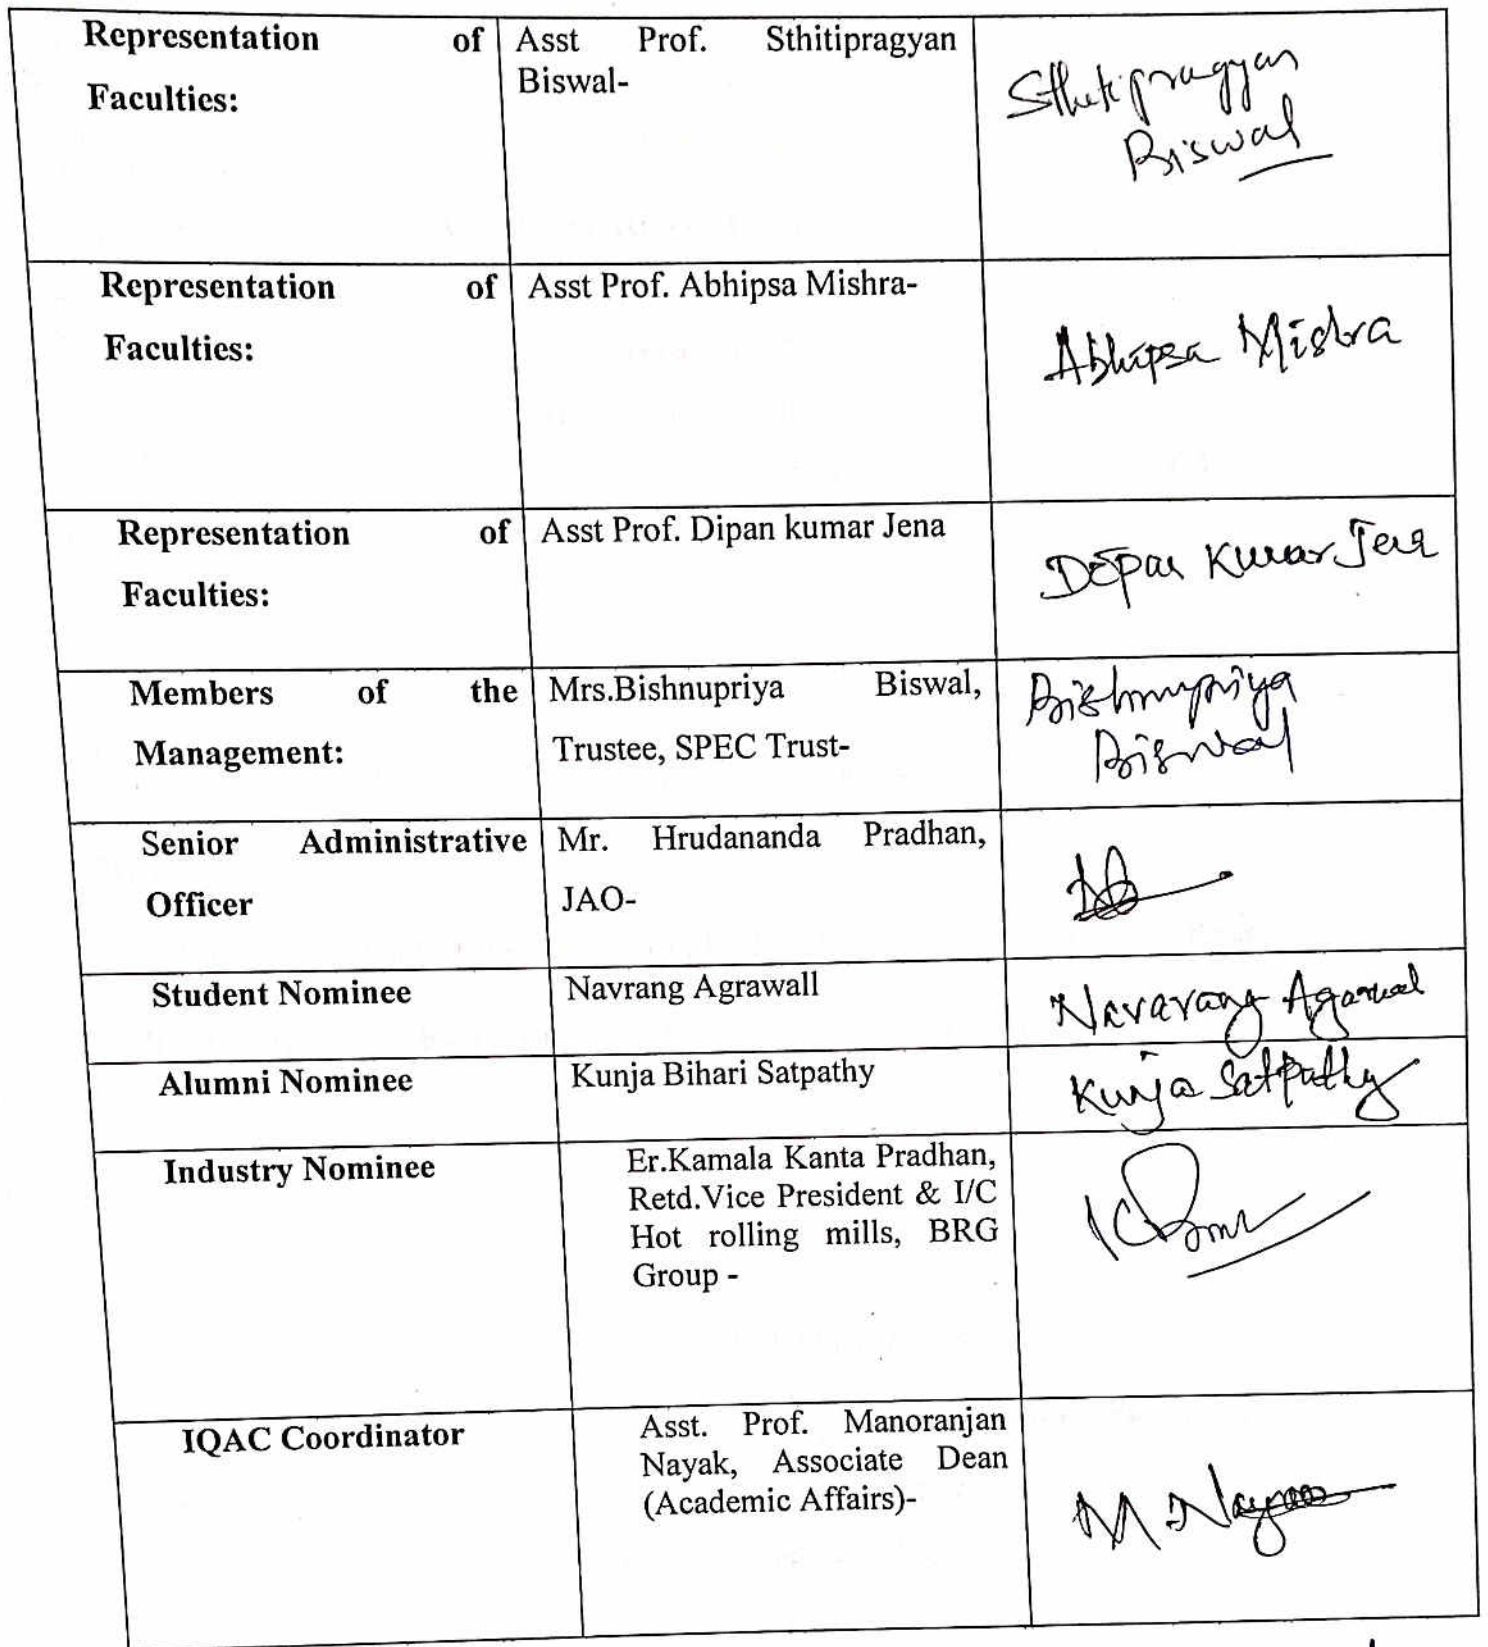 Representation of Asst Prof. Sthitipragyan
Faculties: Biswal-
Sthitipragyan
Biswal
Representation of Asst Prof. Abhipsa Mishra-
Faculties:
Abhipsa Mishra
Representation of Asst Prof. Dipan kumar Jena
Faculties:
Dipan Kumar Jena
Members of the Mrs.Bishnupriya Biswal,
Management: Trustee, SPEC Trust-
Bishnupriya
Biswal
Senior Administrative Mr. Hrudananda Pradhan,
Officer JAO-
Student Nominee Navrang Agrawall
Navarang Agarwal
Alumni Nominee Kunja Bihari Satpathy
Kunja Satpathy
Industry Nominee Er.Kamala Kanta Pradhan,
Retd.Vice President & I/C
Hot rolling mills, BRG
Group -
IQAC Coordinator Asst. Prof. Manoranjan
Nayak, Associate Dean
(Academic Affairs)-
M Nayak